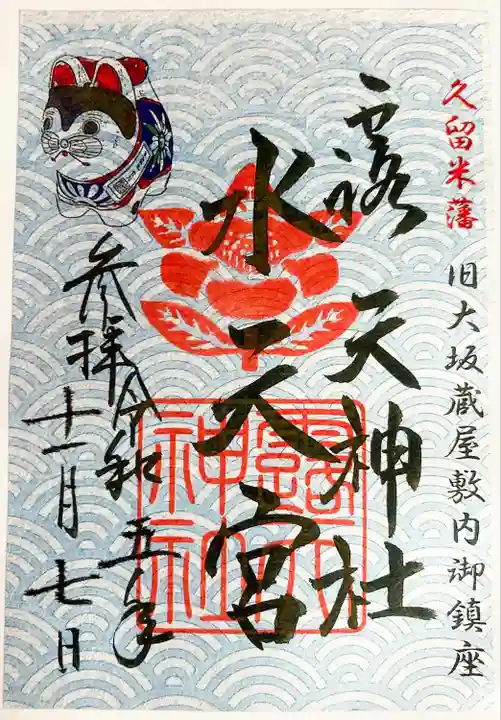 久留米藩 旧大坂蔵屋敷内御鎮座
露天神社
水天宮
参拝令和五年
十一月七日